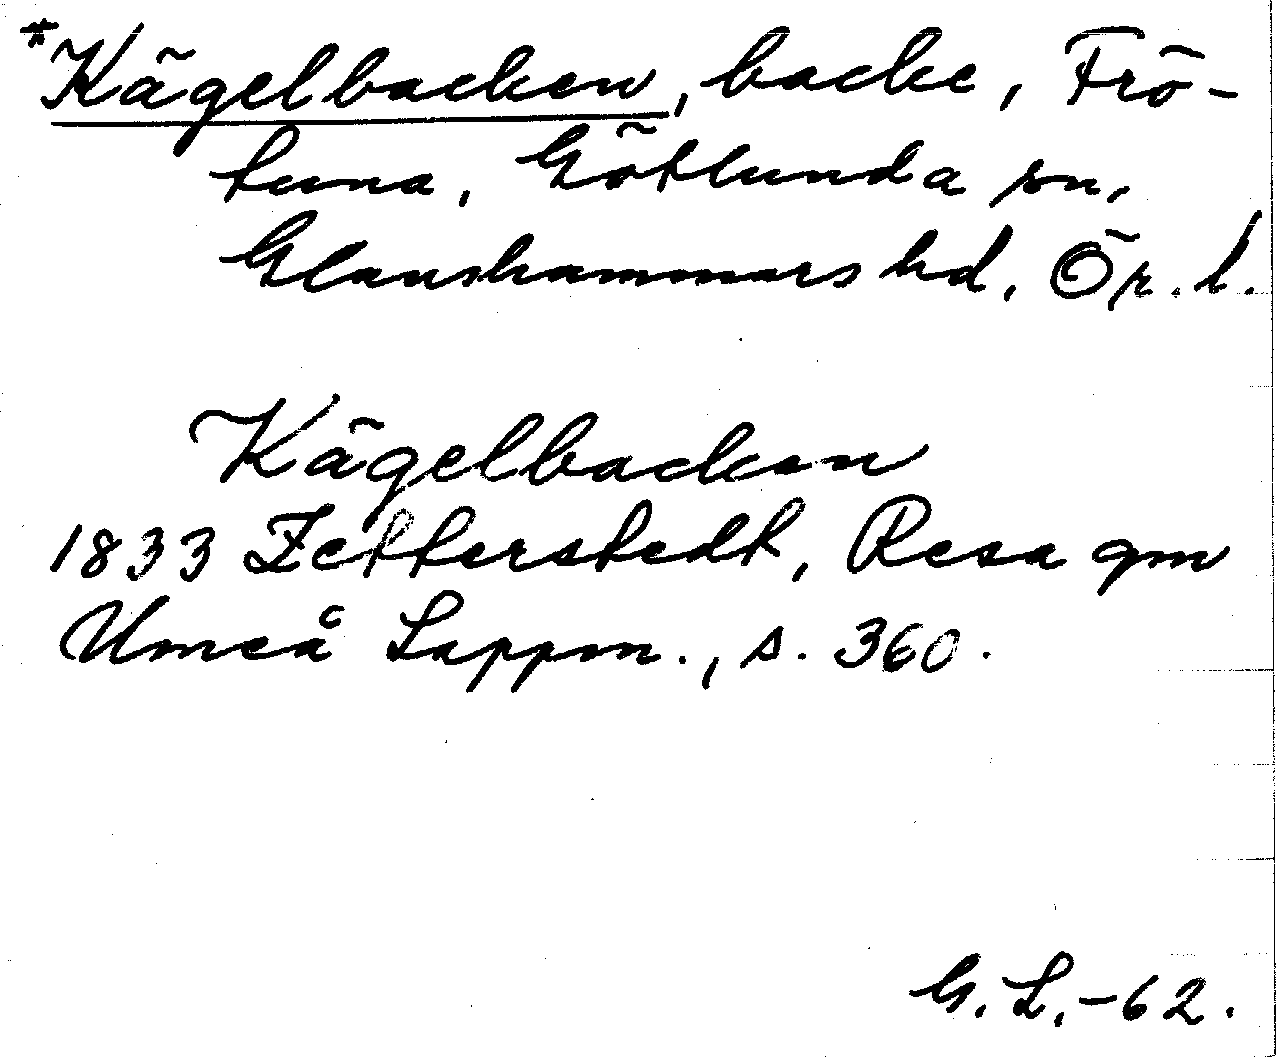 *Kägelbacken, backe, Frö-
tuna, Götlunda sn,
Glanshammars hd, Ör. l.
Kägelbacken
1833 Zetterstedt, Resa gm
Umeå Lappm., s. 360.
G. L. -62.